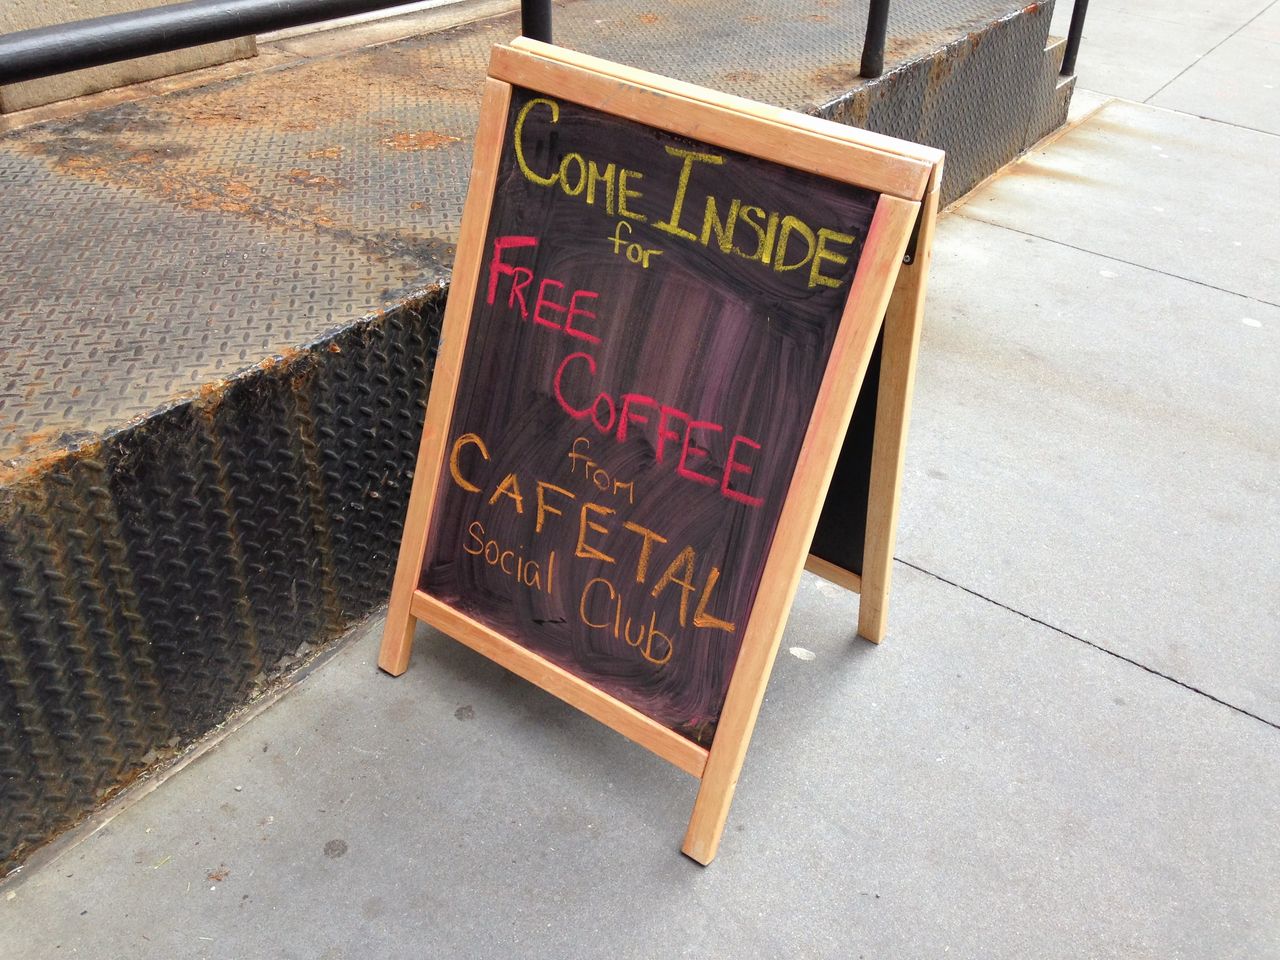 COME INSIDE
for
FREE
COFFEE
from
CAFETAL
Social Club